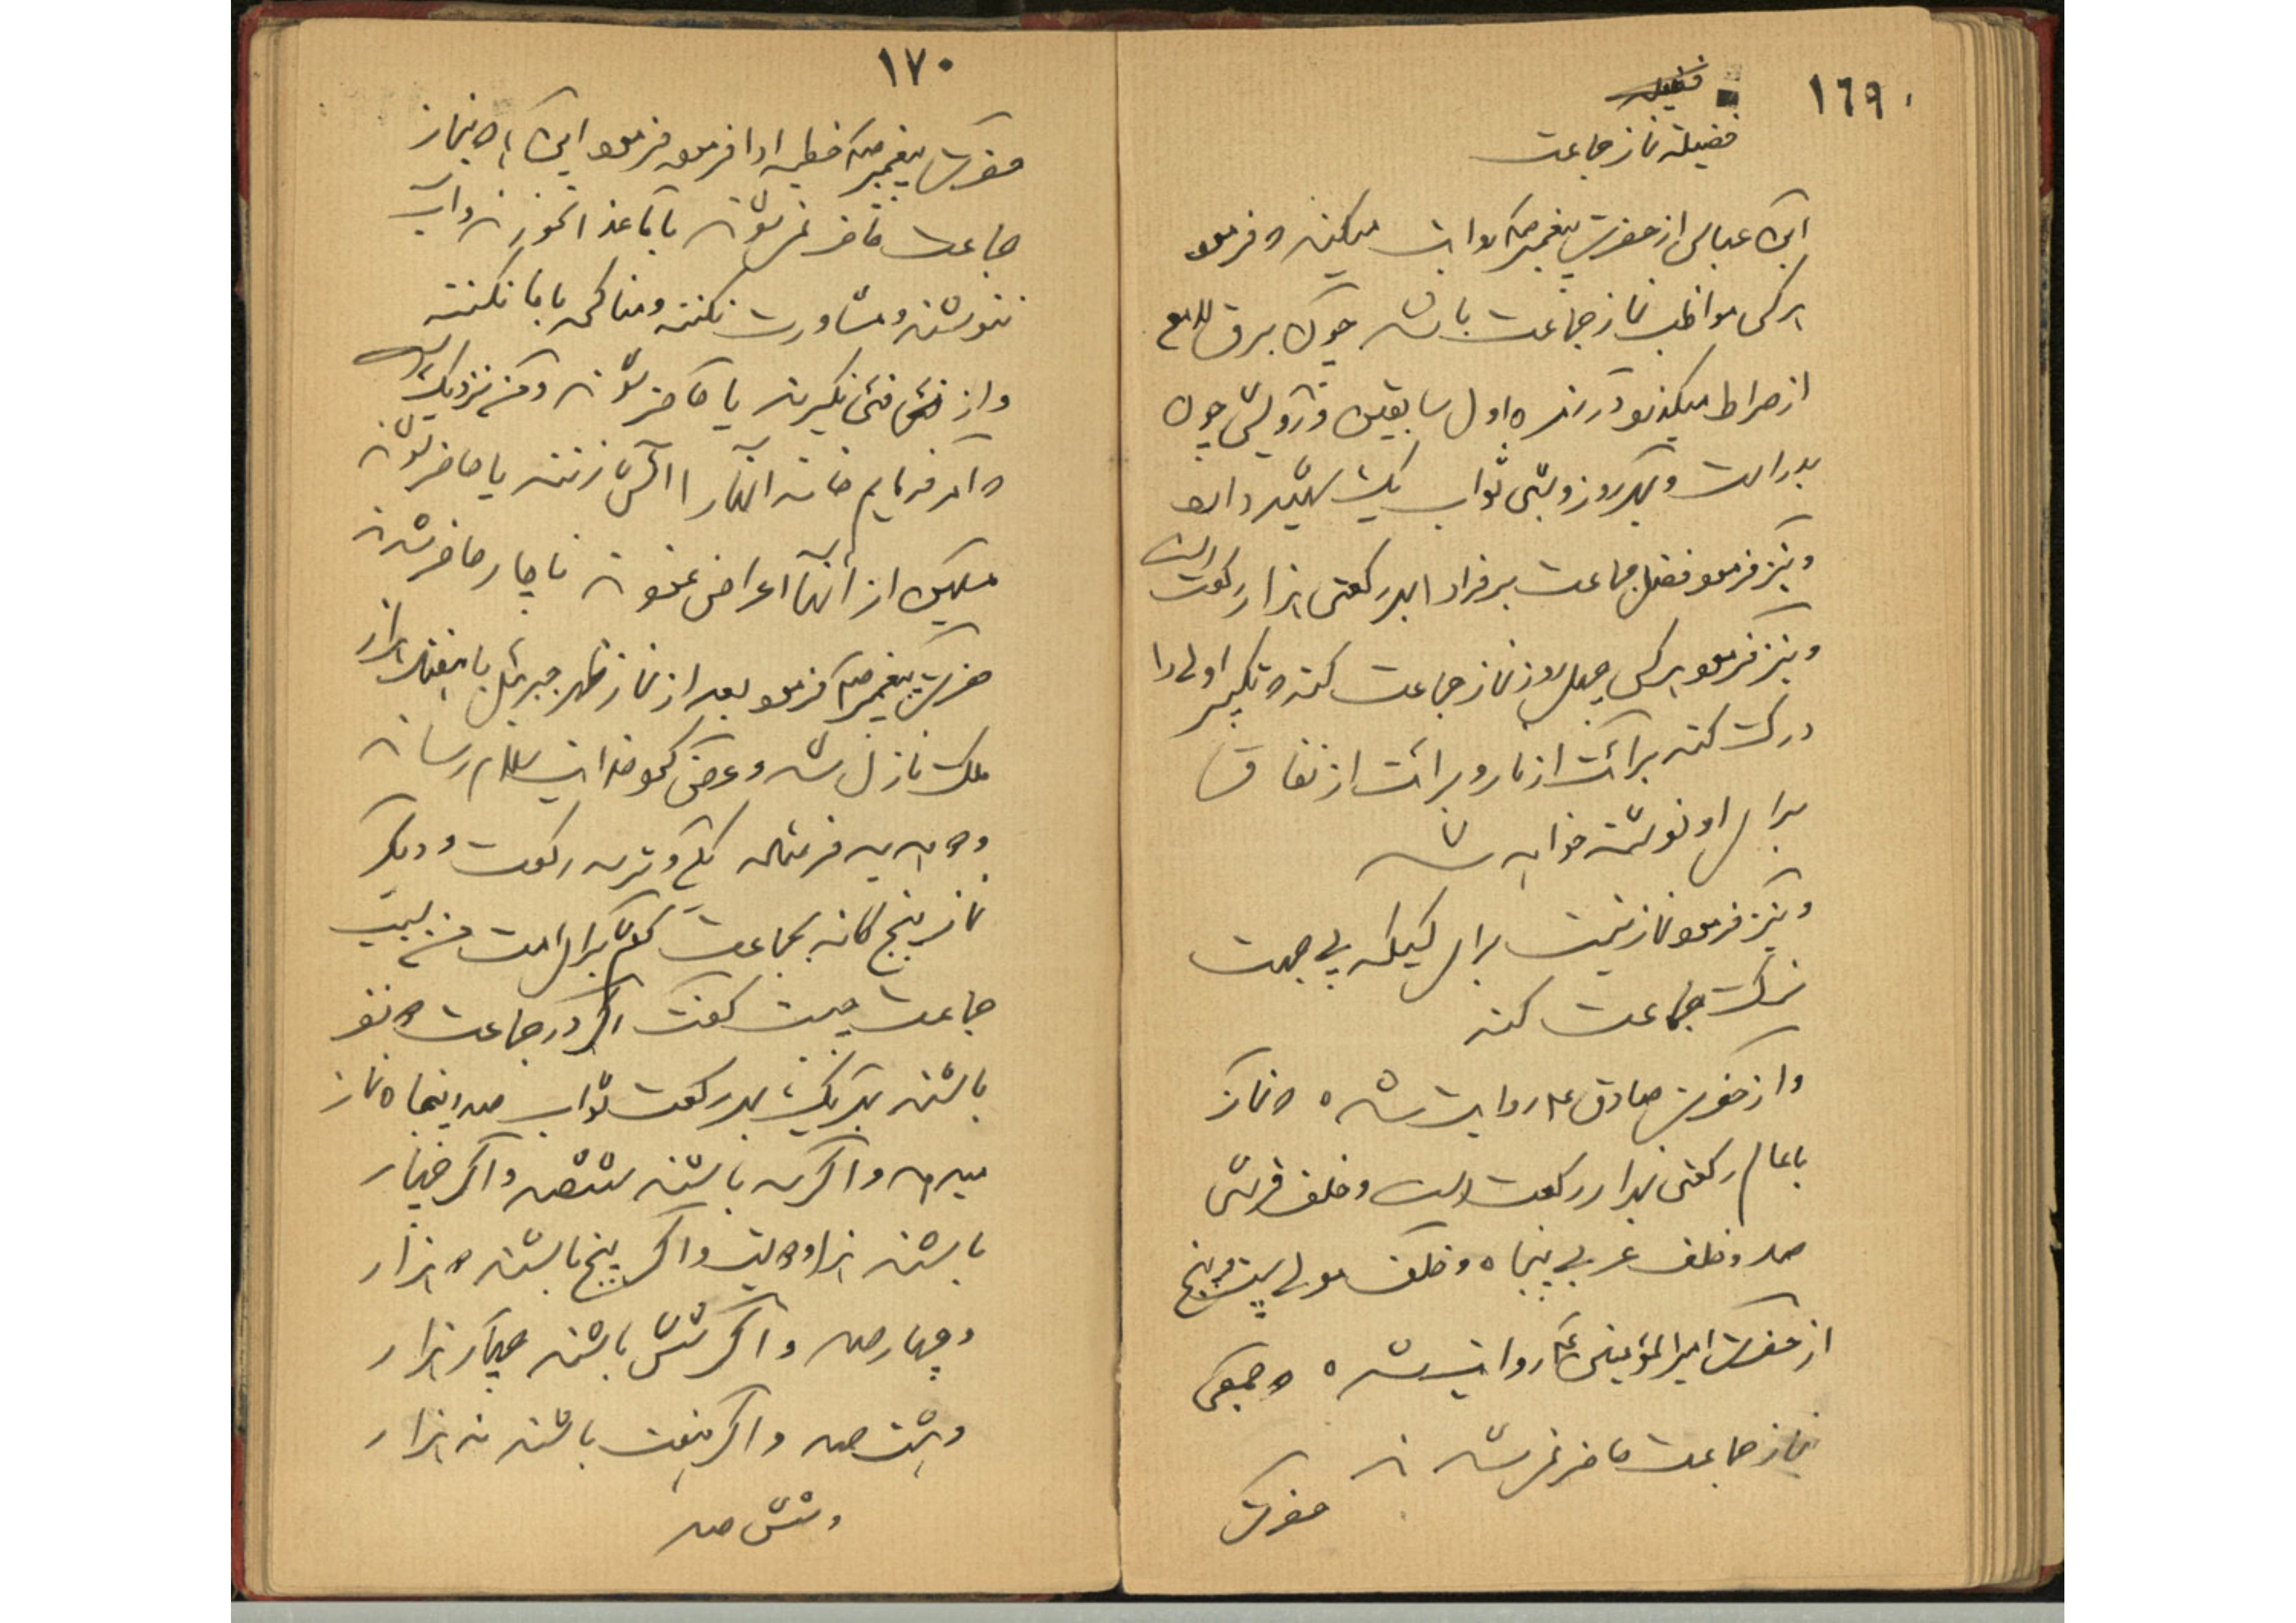 ١٦٩
فضیلة نماز جماعت
ابن عباس از حضرت پیغمبر صلم روایت میکند و فرمود
هر کس مواظب نماز جماعت باشد چون برق لامع
از صراط میگذرد در زمره اول سابقین و رویش چون
بدر است و بهر روز و شبی ثواب یک شهید دارد
و نیز فرمود فضل جماعت بر فرادا بهر رکعتی هزار رکعت است
و نیز فرمود هر کس چهل روز نماز جماعت کند و تکبیر اولی را
درک کند برائت از نار و برائت از نفاق
برای او نوشته خواهد شد
و نیز فرمود نماز نیست برای کسیکه بی جهت
ترک جماعت کند
و از حضرت صادق ع روایت شده که نماز
با عالم رکعتی هزار رکعت است و خلف قرشی
صد و خلف عربی پنجاه و خلف مولی بیست و پنج
از حضرت امیر المؤمنین ع روایت شده که جمعی
نماز جماعت حاضر نمیشدند
حضرت
١٧٠
حضرت پیغمبر صلم خطبه ادا فرمود فرمود این که به نماز
جماعت حاضر نمیشوند با ما غذا نخورند و آب
ننوشند و مشاورت نکنند و مناکحه با ما نکنند
و از فئی نگیرند یا حاضر شوند و نزدیک است
که امر فرمایم خانه آنها را آتش زنند یا حاضر شوند
مسلمین از آنها اعراض نمودند ناچار حاضر شدند
حضرت پیغمبر صلم فرمود بعد از نماز ظهر جبرئیل با هفتاد هزار
ملک نازل شد و عرض کرد خدایت سلام رساند
و دو هدیه فرستاده یکی وتر سه رکعت و دیگر
نماز پنج گانه بجماعت گفتم برای امت من
جماعت چیست گفت اگر در جماعت دو نفر
باشند بهر یک بهر رکعت ثواب صد و پنجاه نماز
میدهد و اگر سه باشند ششصد و اگر چهار
باشند هزار و دویست و اگر پنج باشند دو هزار
و چهارصد و اگر شش باشند چهار هزار
و هشت صد و اگر هفت باشند نه هزار
و شش صد